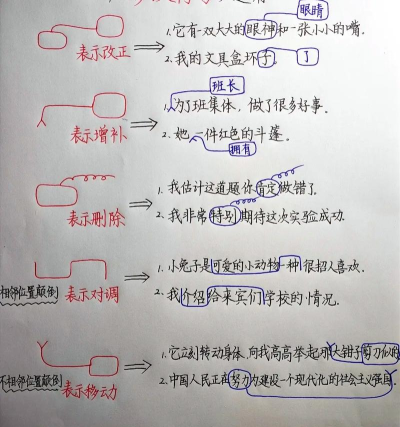 眼睛
表示改正
1.它有一双大大的眼神和一张小小的嘴.
2.我的文具盒坏子. 了
班长
表示增补
1.为了班集体，做了很多好事.
2.她一件红色的斗篷.
拥有
表示删除
1.我估计这道题你肯定做错了.
2.我非常特别期待这次实验成功.
相邻位置颠倒 表示对调
1.小兔子是可爱的小动物一种很招人喜欢.
2.我介绍给来宾们学校的情况.
不相邻位置颠倒 表示移动
1.它立刻转动身体,向我高高举起那大钳子剪刀似的
2.中国人民正在努力为建设一个现代化的社会主义强国.